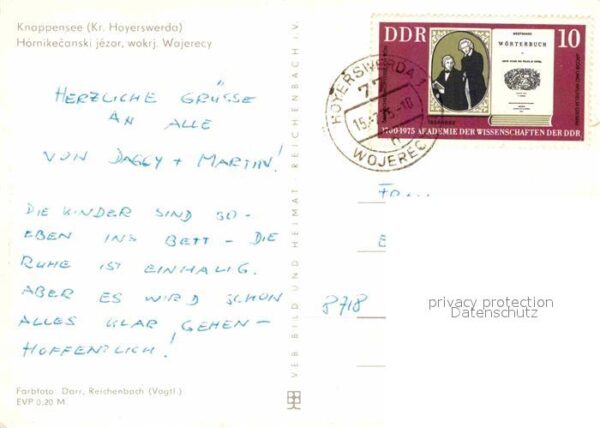 Knappensee (Kr. Hoyerswerda)
Hórnikečanski jězor, wokrj. Wojerecy
HERZLICHE GRÜSSE
AN ALLE
VON DAGGY + MARTIN!
DIE KINDER SIND SO-
EBEN INS BETT - DIE
RUHE IST EINMALIG.
ABER ES WIRD SCHON
ALLES KLAR GEHEN -
HOFFENTLICH!
Farbfoto: Darr, Reichenbach (Vogtl.)
EVP 0,20 M
VEB BILD UND HEIMAT REICHENBACH i. V.
DDR
10
WÖRTERBUCH
1700-1975 AKADEMIE DER WISSENSCHAFTEN DER DDR
HOYERSWERDA 1
77
WOJERECY
8718
privacy protection
Datenschutz